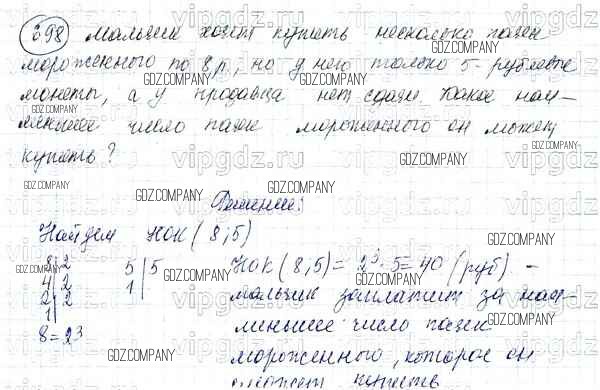 298 Мальчик хочет купить несколько пачек
мороженного по 8 р, но у него только 5-рублевые
монеты, а у продавца нет сдачи. Какое наи-
меньшее число пачек мороженного он может
купить?
Решение:
Найдем НОК (8; 5)
8|2 5|5
4|2 1|
2|2
1|
8=2³
НОК (8, 5) = 2³·5=40 (руб) -
мальчик заплатит за наи-
меньшее число пачек
мороженного, которое он
может купить
GDZ.COMPANY
vipgdz.ru